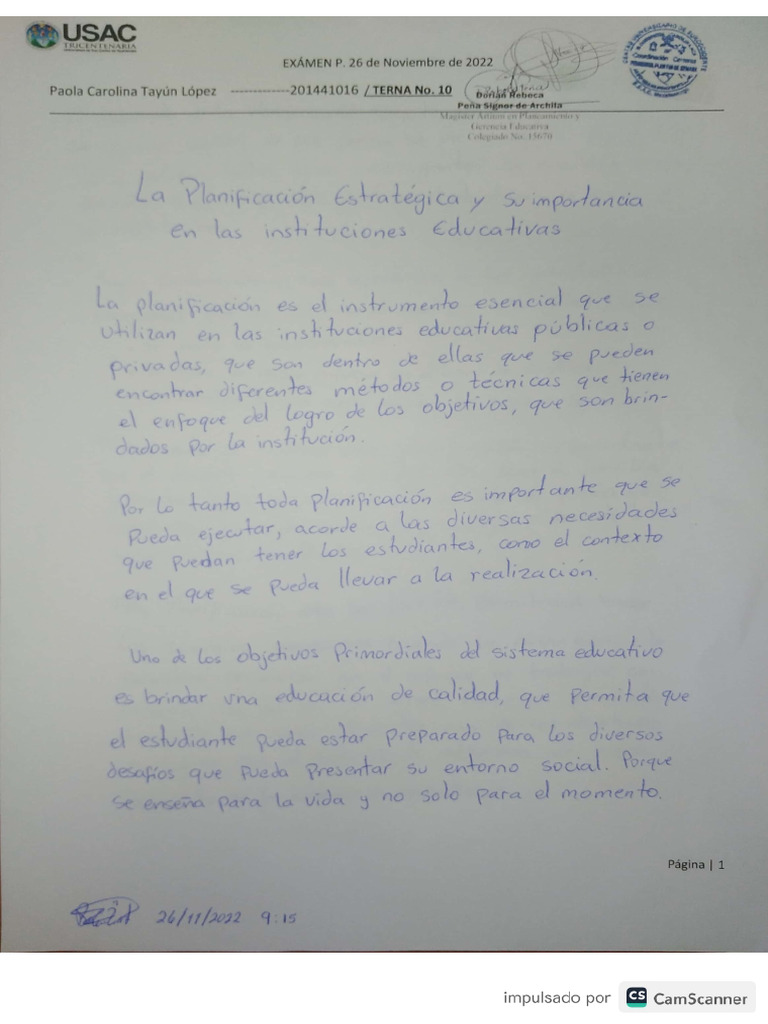 USAC
TRICENTENARIA
EXÁMEN P. 26 de Noviembre de 2022
Paola Carolina Tayún López -------------201441016 / TERNA No. 10
Dorian Rebeca
Peña Signor de Archila
Magister Artium en Planeamiento y
Gerencia Educativa
Colegiado No. 15670
La Planificación Estratégica y su importancia
en las instituciones Educativas
La planificación es el instrumento esencial que se
utilizan en las instituciones educativas públicas o
privadas, que son dentro de ellas que se pueden
encontrar diferentes métodos o técnicas que tienen
el enfoque del logro de los objetivos, que son brin-
dados por la institución.
Por lo tanto toda planificación es importante que se
pueda ejecutar, acorde a las diversas necesidades
que puedan tener los estudiantes, como el contexto
en el que se pueda llevar a la realización.
Uno de los objetivos primordiales del sistema educativo
es brindar una educación de calidad, que permita que
el estudiante pueda estar preparado para los diversos
desafíos que pueda presentar su entorno social. Porque
se enseña para la vida y no solo para el momento.
Página | 1
26/11/2022 9:15
impulsado por CS CamScanner